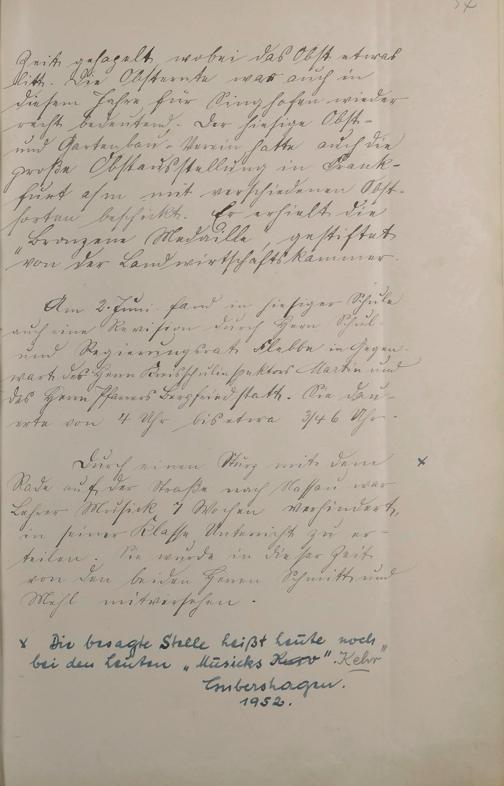 Zeit gehagelt, wobei das Obst etwas
litt. Die Obsternte war auch in
diesem Jahre für Singhofen wieder
recht bedeutend. Der hiesige Obst-
und Gartenbau-Verein hatte auch die
große Obstausstellung in Frank-
furt a/m mit verschiedenen Obst-
sorten beschickt. Er erhielt die
„Bronzene Medaille", gestiftet
von der Landwirtschaftskammer.
Am 2. Juni fand in hiesiger Schule
auch eine Revision durch Herrn Schul-
und Regierungsrat Flebbe in Gegen-
wart des Herrn Kreisschulinspektors Martin und
des Herrn Pfarrers Bergfried statt. Sie dau-
erte von 4 Uhr bis etwa 3/4 6 Uhr.
Durch einen Sturz mit dem x
Rade auf der Straße nach Nassau war
Lehrer Musick 7 Wochen verhindert,
in seiner Klasse Unterricht zu er-
teilen. Sie wurde in dieser Zeit
von den beiden Herren Schmitt und
Mehl mitversehen.
x Die besagte Stelle heißt heute noch
bei den Leuten „Musicks Kehr"
1952.